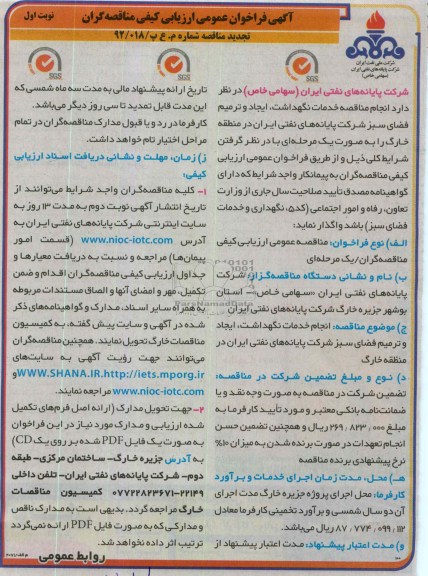 آگهی فراخوان عمومی ارزیابی کیفی مناقصه‌گران
نوبت اول
تجدید مناقصه شماره م. ع ب / ۹۴/۰۱۸
شرکت ملی نفت ایران
شرکت پایانه‌های نفتی ایران
(سهامی خاص)
SGS
SGS
SGS
شرکت پایانه‌های نفتی ایران (سهامی خاص) در نظر
دارد انجام مناقصه خدمات نگهداشت، ایجاد و ترمیم
فضای سبز شرکت پایانه‌های نفتی ایران در منطقه
خارگ را به صورت یک مرحله‌ای با در نظر گرفتن
شرایط کلی ذیل و از طریق فراخوان عمومی ارزیابی
کیفی مناقصه‌گران به پیمانکار واجد شرایط که دارای
گواهینامه مصدق تأیید صلاحیت سال جاری از وزارت
تعاون، رفاه و امور اجتماعی (کد۵، نگهداری و خدمات
فضای سبز) باشد واگذار نماید:
الف) نوع فراخوان: مناقصه عمومی ارزیابی کیفی
مناقصه‌گران/یک مرحله‌ای
ب) نام و نشانی دستگاه مناقصه‌گزار: شرکت
پایانه‌های نفتی ایران «سهامی خاص»- استان
بوشهر جزیره خارگ شرکت پایانه‌های نفتی ایران
ج) موضوع مناقصه: انجام خدمات نگهداشت، ایجاد
و ترمیم فضای سبز شرکت پایانه‌های نفتی ایران در
منطقه خارگ
د) نوع و مبلغ تضمین شرکت در مناقصه:
تضمین شرکت در مناقصه به صورت وجه نقد و یا
ضمانت‌نامه بانکی معتبر و مورد تأیید کارفرما به
مبلغ ۲۶۹/۸۲۳/۰۰۰ ریال و همچنین تضمین حسن
انجام تعهدات در صورت برنده شدن به میزان ۱۰%
نرخ پیشنهادی برنده مناقصه
هـ) محل، مدت زمان اجرای خدمات و برآورد
کارفرما: محل اجرای پروژه جزیره خارگ مدت اجرای
آن دو سال شمسی و برآورد تخمینی کارفرما معادل
۸۷/۷۷۴/۰۹۹/۱۱۲ ریال می‌باشد.
و) مدت اعتبار پیشنهاد: مدت اعتبار پیشنهاد از
تاریخ ارائه پیشنهاد مالی به مدت سه ماه شمسی که
این مدت قابل تمدید تا سی روز دیگر می‌باشد.
کارفرما در رد و یا قبول مدارک مناقصه‌گران در تمام
مراحل اختیار تام خواهد داشت.
ز) زمان، مهلت و نشانی دریافت اسناد ارزیابی
کیفی:
۱- کلیه مناقصه‌گران واجد شرایط می‌توانند از
تاریخ انتشار آگهی نوبت دوم به مدت ۱۳ روز به
سایت اینترنتی شرکت پایانه‌های نفتی ایران به
آدرس www.nioc-iotc.com (قسمت امور
پیمان‌ها) مراجعه و نسبت به دریافت معیارها و
جداول ارزیابی کیفی مناقصه‌گران اقدام و ضمن
تکمیل، مهر و امضای آنها و الصاق مستندات مربوطه
به همراه سایر اسناد، مدارک و گواهینامه‌های ذکر
شده در آگهی و سایت پیش گفته، به کمیسیون
مناقصات خارگ تحویل نمایند. همچنین مناقصه‌گران
می‌توانند جهت رؤیت آگهی به سایت‌های
WWW.SHANA.IR.http://iets.mporg.ir و
www.nioc-iotc.com مراجعه نمایند.
۲- جهت تحویل مدارک (ارائه اصل فرم‌های تکمیل
شده ارزیابی و مدارک مورد نیاز در این فراخوان
به صورت یک فایل PDF شده بر روی یک CD)
به آدرس جزیره خارگ- ساختمان مرکزی- طبقه
دوم- شرکت پایانه‌های نفتی ایران- تلفن داخلی
۲۲۱۴۹-۰۷۷۲۲۸۲۳۶۷۱ کمیسیون مناقصات
خارگ مراجعه گردد. بدیهی است به مدارک ناقص
و مدارکی که به صورت فایل PDF ارائه نمی‌گردد
ترتیب اثر داده نخواهد شد.
روابط عمومی